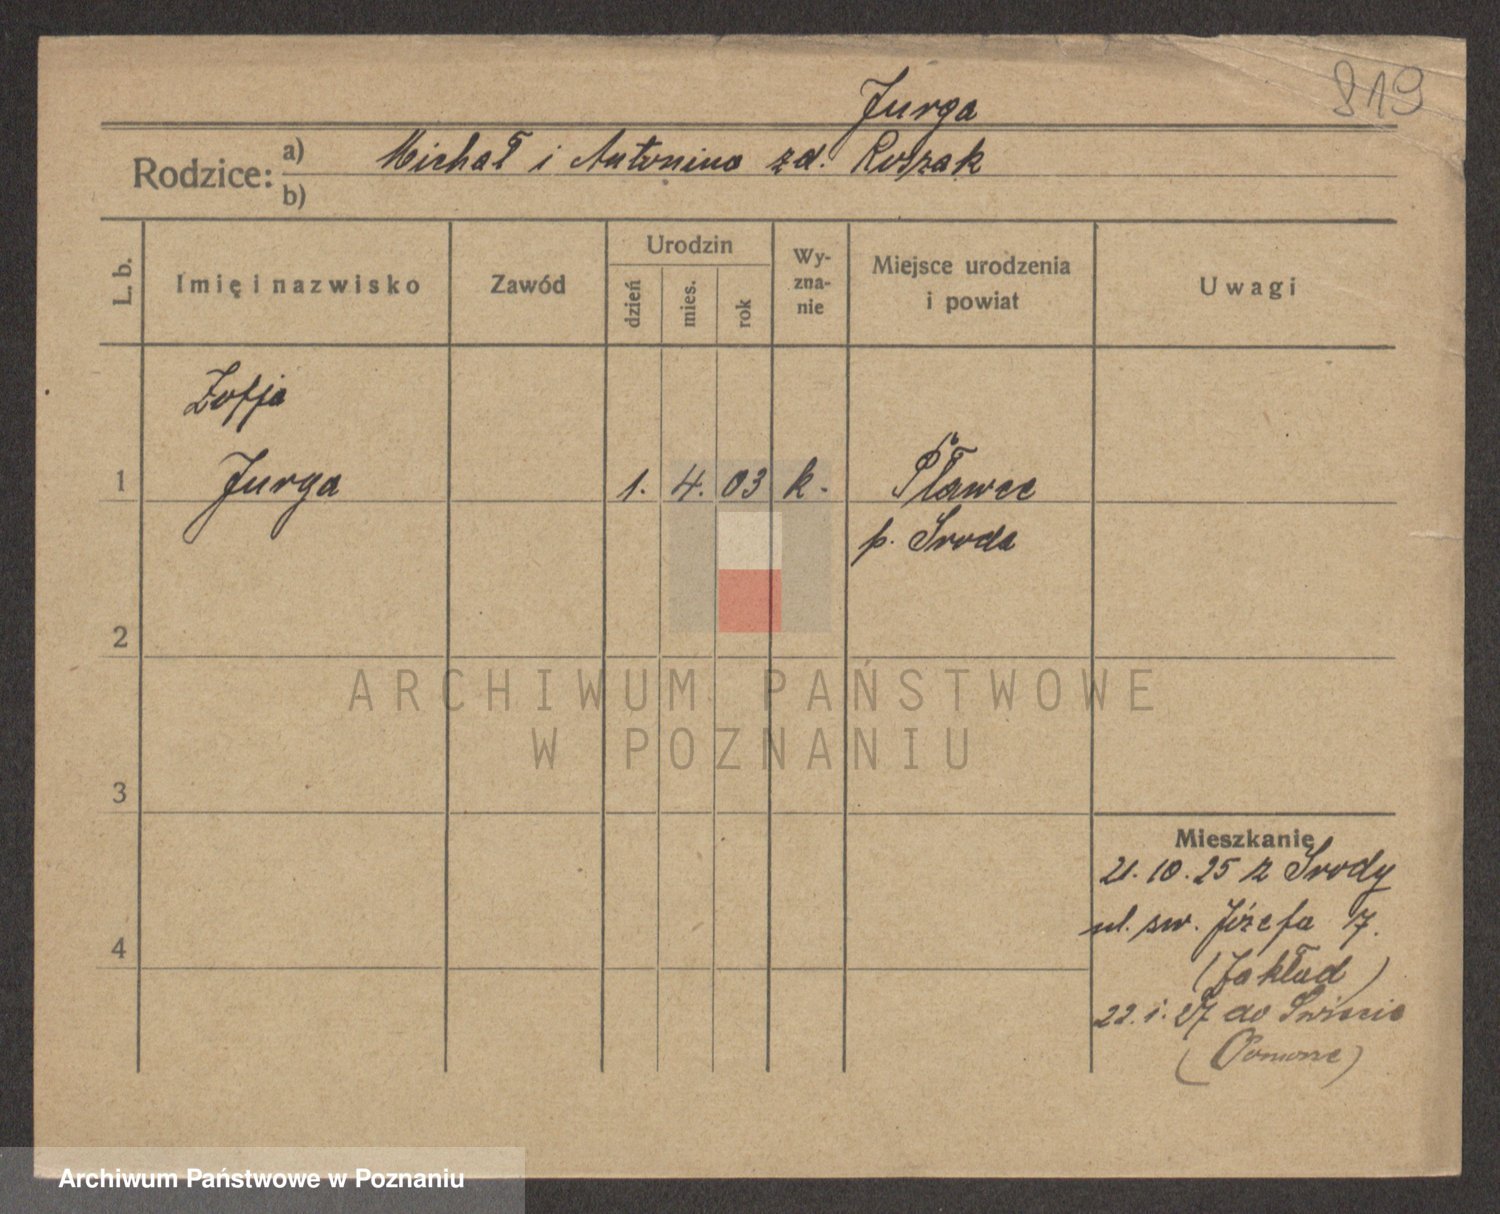 819
Jurga
Rodzice: a) Michał i Antonina zd. Roszak
b)
L. b.
Imię i nazwisko
Zawód
Urodzin
dzień
mies.
rok
Wy-
zna-
nie
Miejsce urodzenia
i powiat
Uwagi
Zofja
1 Jurga 1. 4. 03 k. Pławce
p. Środa
2
ARCHIWUM PAŃSTWOWE
W POZNANIU
3
Mieszkanie
21. 10. 25 z Środy
ul. św. Józefa 7.
4
(Zakład)
22. 1. 27 do Świecie
(Pomorze)
Archiwum Państwowe w Poznaniu